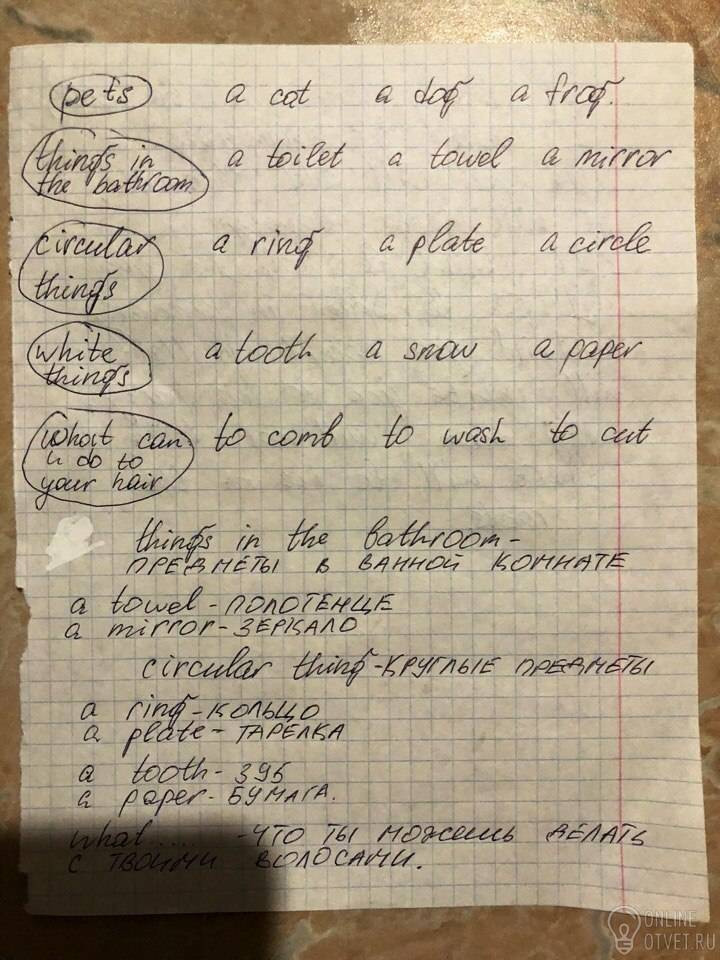 pets a cat a dog a frog.
things in
the bathroom a toilet a towel a mirror
circular
things a ring a plate a circle
white
things a tooth a snow a paper
what can
u do to
your hair to comb to wash to cut
things in the bathroom -
ПРЕДМЕТЫ В ВАННОЙ КОМНАТЕ
a towel - ПОЛОТЕНЦЕ
a mirror - ЗЕРКАЛО
circular thing - КРУГЛЫЕ ПРЕДМЕТЫ
a ring - КОЛЬЦО
a plate - ТАРЕЛКА
a tooth - ЗУБ
a paper - БУМАГА.
what ..... - ЧТО ТЫ МОЖЕШЬ ДЕЛАТЬ
С ТВОИМИ ВОЛОСАМИ.
ONLINE
OTVET.RU